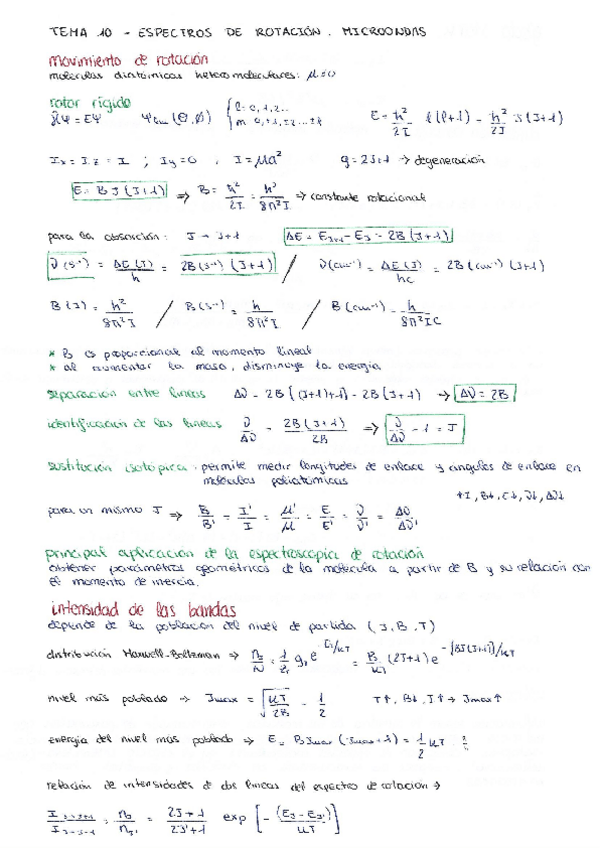 TEMA 10 - ESPECTROS DE ROTACIÓN. MICROONDAS
movimiento de rotación
moléculas diatómicas heteromoleculares: μ≠0
rotor rígido
ĤΨ = EΨ Ψ (θ,φ) { l = 0,1,2.. E = ħ²/2I l(l+1) = ħ²/2I J(J+1)
m 0,±1,±2...±l
Ix = Iz = I ; Iy = 0 , I = μa² g = 2J+1 → degeneración
E = B J(J+1) ⇒ B = ħ²/2I = h²/8π²I ⇒ constante rotacional
para la absorción: J → J+1 ΔE = E_J+1 - E_J = 2B(J+1)
ν(s⁻¹) = ΔE(J)/h = 2B(s⁻¹)(J+1) / ν(cm⁻¹) = ΔE(J)/hc = 2B(cm⁻¹)(J+1)
B(J) = h²/8π²I / B(s⁻¹) = h/8π²I / B(cm⁻¹) = h/8π²Ic
* B es proporcional al momento lineal
* al aumentar la masa, disminuye la energía
separación entre líneas Δν = 2B[(J+1)+1] - 2B(J+1) → Δν = 2B
identificación de las líneas ν/Δν = 2B(J+1)/2B ⇒ ν/Δν - 1 = J
sustitución isotópica: permite medir longitudes de enlace y ángulos de enlace en
moléculas poliatómicas
↑I, B↓, E↓, ν↓, Δν↓
para un mismo J ⇒ B/B' = I'/I = μ'/μ = E/E' = ν/ν' = Δν/Δν'
principal aplicación de la espectroscopía de rotación
obtener parámetros geométricos de la molécula a partir de B y su relación con
el momento de inercia.
intensidad de las bandas
depende de la población del nivel de partida (J, B, T)
distribución Maxwell-Boltzman → = (2J+1) e
nivel más poblado → Jmax = √(kT/2B) - 1/2 T↑, B↓, I↑ → Jmax↑
energía del nivel más poblado → E = B Jmax (Jmax+1) = 1/2 kT
relación de intensidades de dos líneas del espectro de rotación →
= 2J+1/2J'+1 exp [-(E_J - E_J')/kT]